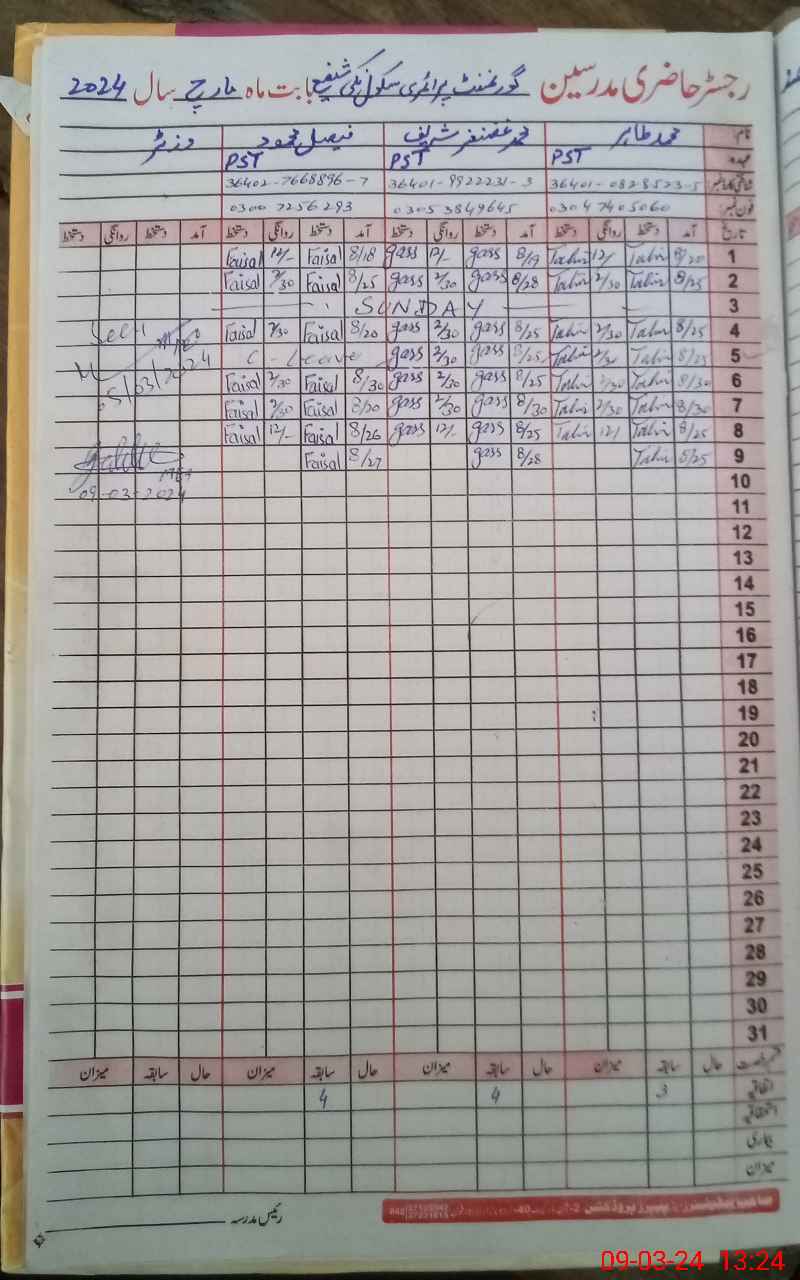 رجسٹر حاضری مدرسین گورنمنٹ پرائمری سکول بکی شفیع بابت ماہ مارچ سال 2024
نام محمد طاہر محمد غضنفر شریف فیصل محمود وزٹر
عہدہ PST PST PST
36401-0828523-5 36401-9922231-3 36402-7668896-7
فون نمبر 0304 7405060 0305 3849645 0300 7256293
تاریخ آمد دستخط روانگی دستخط آمد دستخط روانگی دستخط آمد دستخط روانگی دستخط آمد دستخط روانگی دستخط
1 8/20 Tahir 12/ Tahir 8/19 gass 12/- gass 8/18 Faisal 12/- Faisal
2 8/25 Tahir 2/30 Tahir 8/28 gass 2/30 gass 8/25 Faisal 2/30 Faisal
3 SUNDAY
4 8/25 Tahir 2/30 Tahir 8/25 gass 2/30 gass 8/20 Faisal 2/30 Faisal Seen
5 8/25 Tahir 2/30 Tahir 8/25 gass 2/30 gass C-Leave 05/03/2024
6 8/30 Tahir 2/30 Tahir 8/25 gass 2/30 gass 8/30 Faisal 2/30 Faisal
7 8/30 Tahir 2/30 Tahir 8/30 gass 2/30 gass 8/20 Faisal 2/30 Faisal
8 8/25 Tahir 12/ Tahir 8/25 gass 12/- gass 8/26 Faisal 12/- Faisal
9 8/25 Tahir 8/28 gass 8/27 Faisal
10 09-03-2024
11
12
13
14
15
16
17
18
19
20
21
22
23
24
25
26
27
28
29
30
31
حال سابقہ میزان حال سابقہ میزان حال سابقہ میزان حال سابقہ میزان
اتفاقیہ 3 4 4
استحقاقیہ
بیماری
میزان
رئیس مدرسہ
09-03-24 13:24